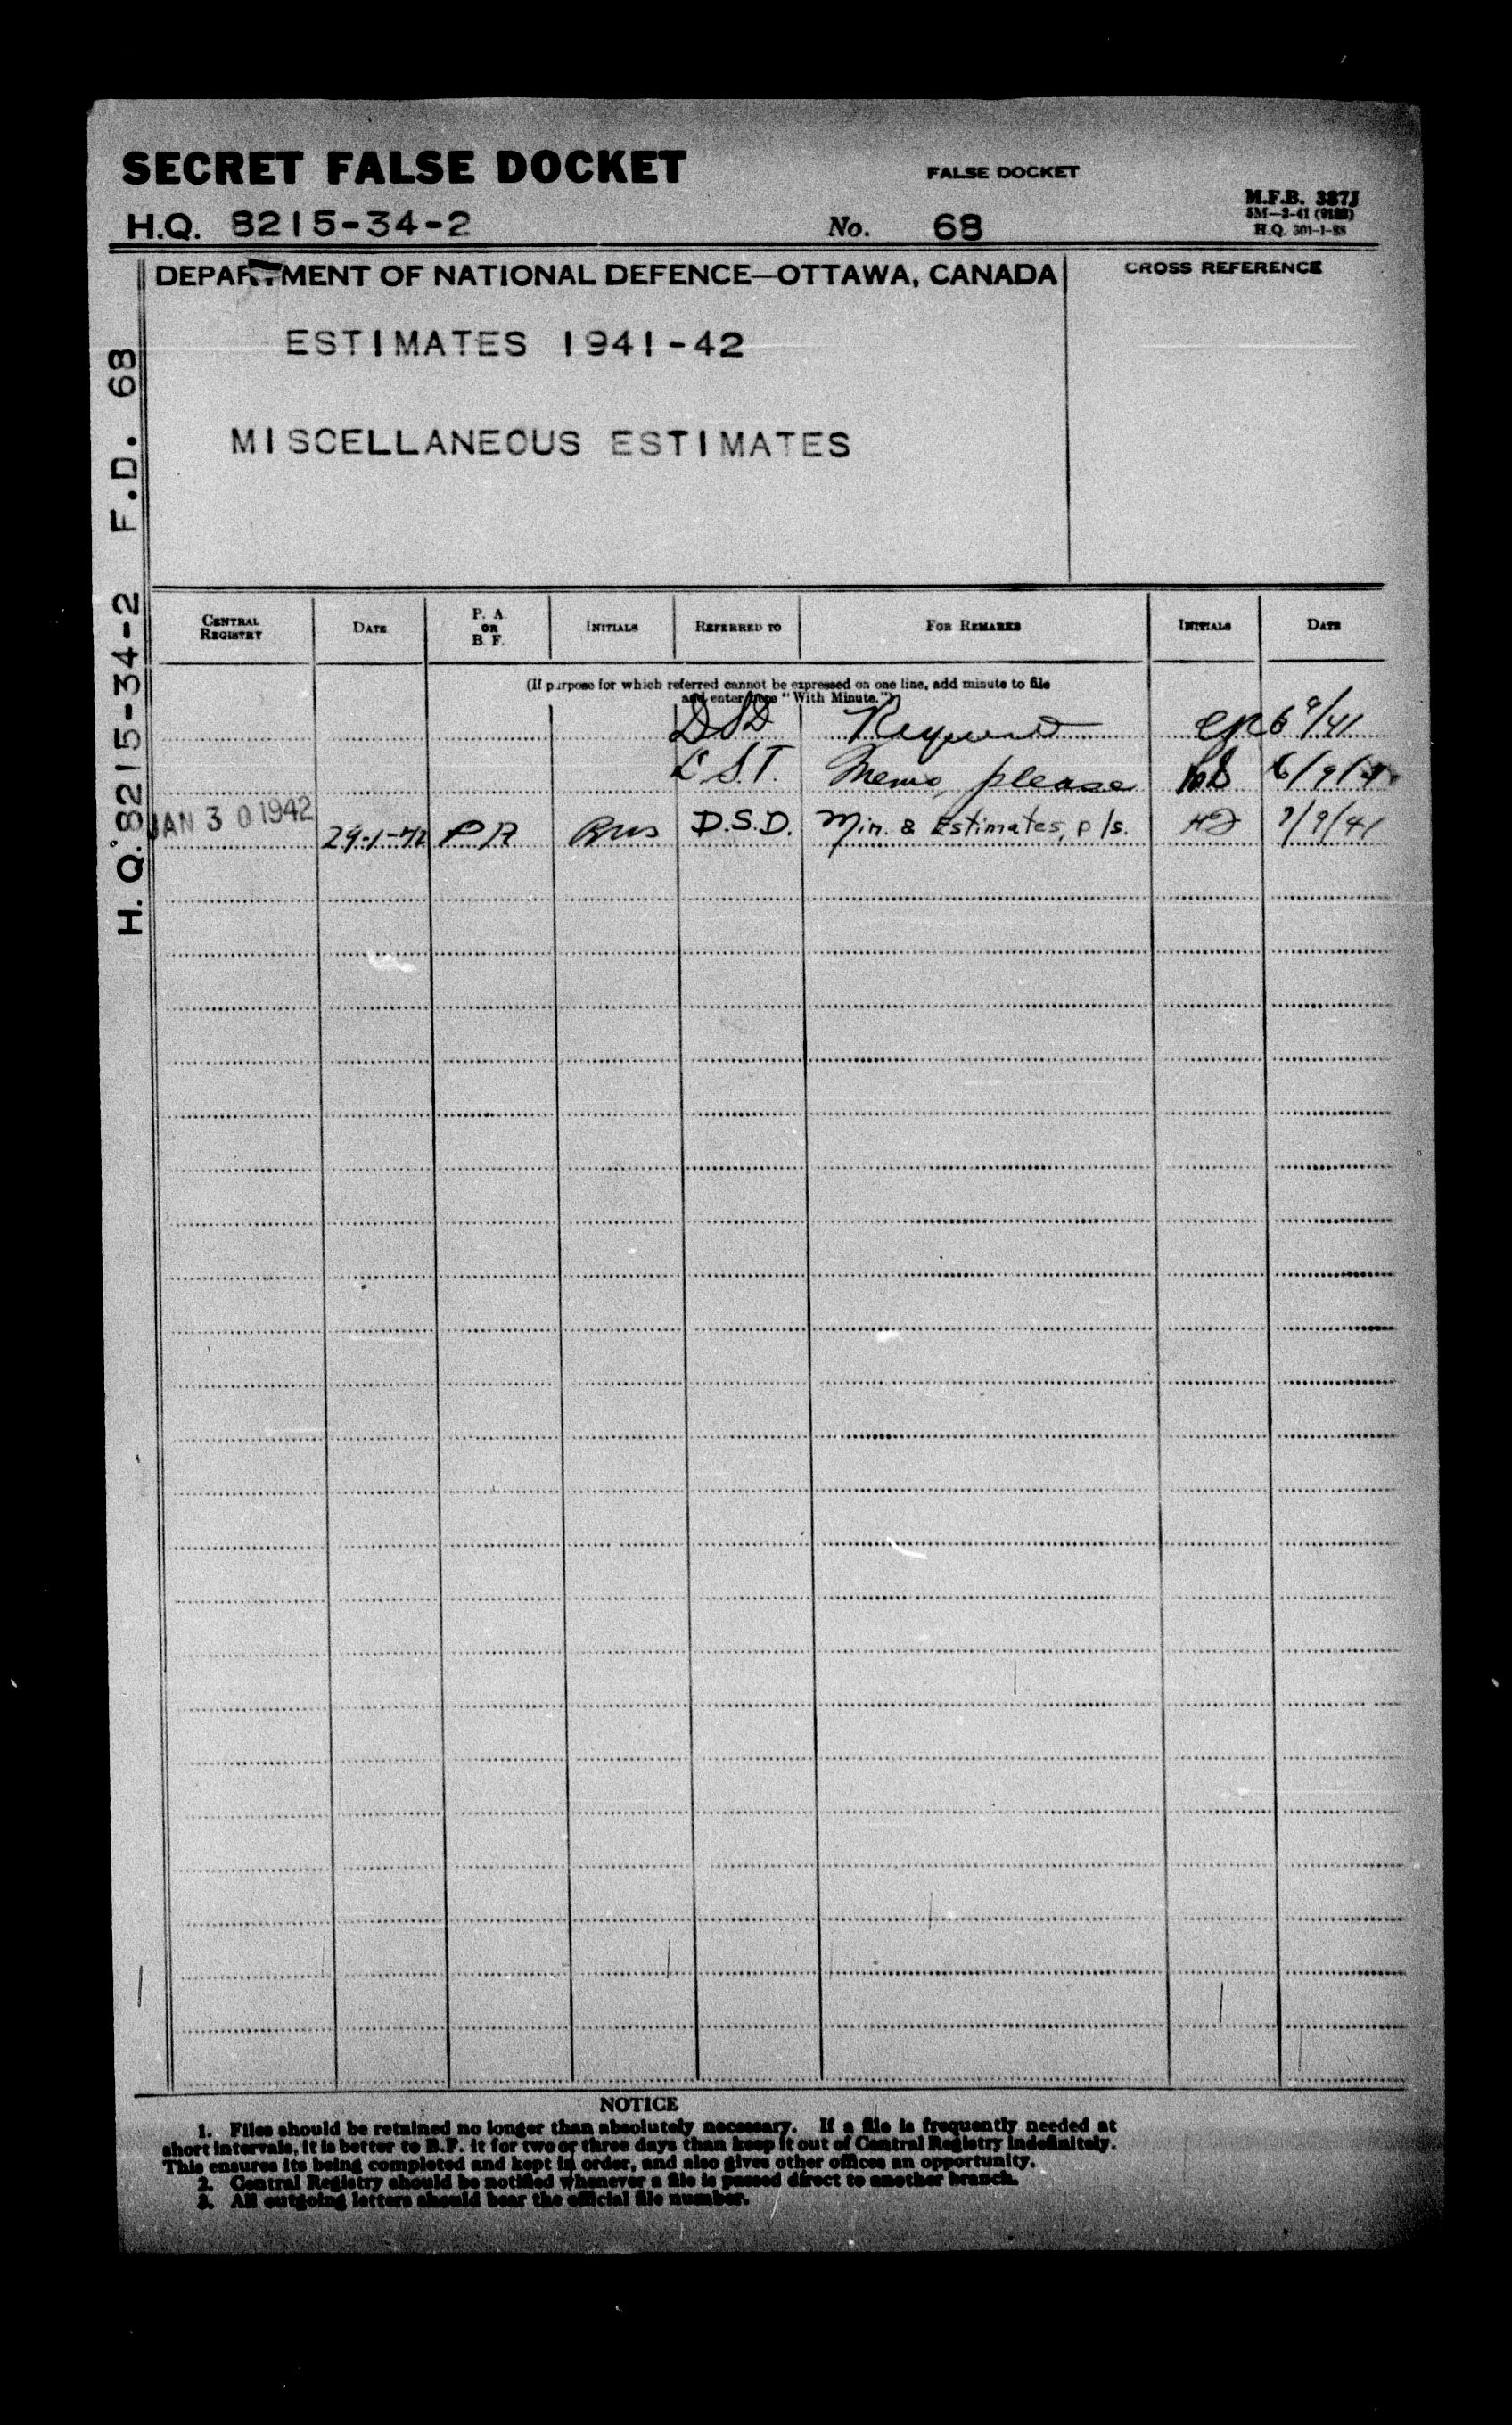 SECRET FALSE DOCKET
FALSE DOCKET
M.F.B. 387J
5M—2-41 (9122)
H.Q. 301-1-88
H.Q. 8215-34-2 No. 68
DEPARTMENT OF NATIONAL DEFENCE—OTTAWA, CANADA
CROSS REFERENCE
ESTIMATES 1941-42
MISCELLANEOUS ESTIMATES
H.Q. 8215-34-2 F.D. 68
CENTRAL REGISTRY DATE P. A. OR B. F. INITIALS REFERRED TO FOR REMARKS INITIALS DATE
(If purpose for which referred cannot be expressed on one line, add minute to file
and enter here "With Minute.")
DSD Required 6/9/41
S.T. Memo, please 6/9/41
JAN 30 1942 29-1-42 PA D.S.D. Min. & Estimates, p/s. 7/9/41
NOTICE
1. Files should be retained no longer than absolutely necessary. If a file is frequently needed at
short intervals, it is better to B.F. it for two or three days than keep it out of Central Registry indefinitely.
This ensures its being completed and kept in order, and also gives other offices an opportunity.
2. Central Registry should be notified whenever a file is passed direct to another branch.
3. All outgoing letters should bear the official file number.